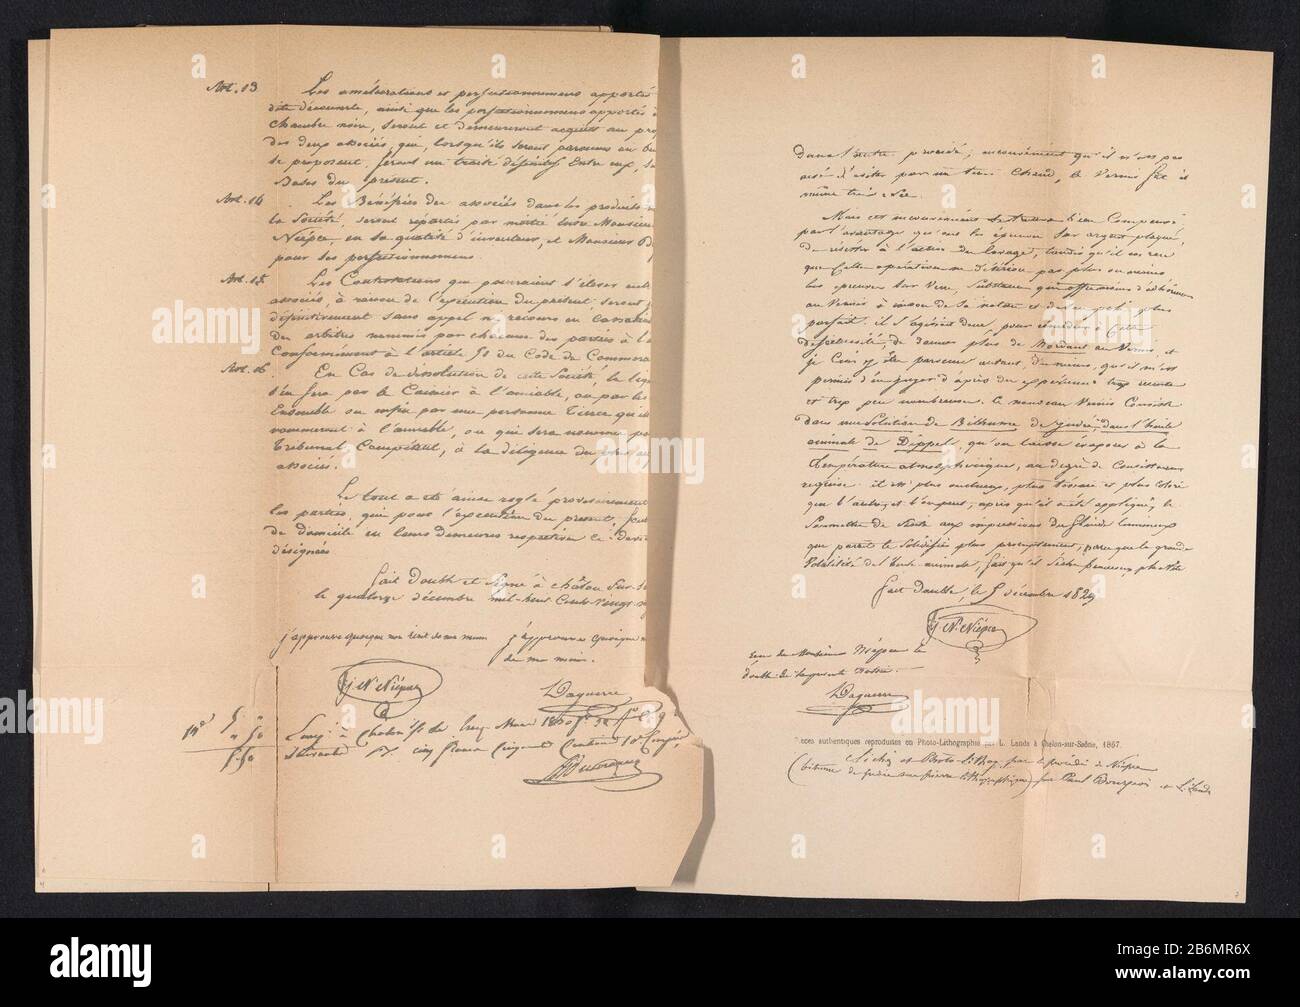 Art. 13. Les améliorations et perfectionnemens apportés
dite découverte, ainsi que les perfectionnemens apportés
chambre noire, seront et demeureront acquis au pro
des deux associés, qui, lorsqu'ils seront parvenus au bu
se proposent, feront un traité définitif entre eux, su
bases du présent.
Art. 14. Les Bénéfices des associés dans les produits
la Société, seront répartis par moitié entre Monsieur
Niépce, en sa qualité d'inventeur, et Monsieur D
pour ses perfectionnemens
Art. 15. Les Contestations qui pourraient s'élever entre
associés, à raison de l'exécution du présent seront
définitivement sans appel ni recours en Cassation
des arbitres nommés par chacune des parties à l'a
Conformément à l'article 51 du Code de Commerce
Art. 16. En Cas de dissolution de cette Société, la liq
s'en fera par le Caissier à l'amiable, ou par les
Ensemble ou enfin par une personne Tierce qu'ils
nommeront à l'amiable, ou qui sera nommée pa
Tribunal Compétent, à la diligence du plus
associés.
Le tout a été ainsi réglé provisoirement
les parties, qui pour l'exécution du présent, font
de domicile en leurs demeures respectives ci-dess
désignées
fait double et signé à Châlon sur-S
le quatorze décembre mil-huit Cents-vingt-n
j'approuve quoique non écrit de ma main
j'approuve quoique n
de ma main.
J. N. Niépce
L. Daguerre
Ducroux
dans l'autre procédé; inconvénient qu'il n'est pas
aisé d'éviter par un tems chaud, le Vernis fut il
même très sec.
Mais cet inconvénient se trouve bien Compensé
par l'avantage qu'ont les épreuves sur argent plaqué,
de résister à l'action du lavage, tandis qu'il est rare
que Cette opération ne détériore pas plus ou moins
les épreuves sur Verre, Substance qui offre moins d'adhérence
au Vernis à raison de sa nature et de son poli plus
parfait. il s'agissait donc, pour remédier à Cette
défectuosité, de donner plus de Mordant au Vernis, et
je Crois y être parvenu autant du moins, qu'il m'est
permis d'en juger d'après des expériences trop récentes
et trop peu nombreuses. le nouveau Vernis Consiste
dans une Solution de Bithume de judée, dans l'huile
animale de Dippel, qu'on laisse évaporer à la
température atmosphérique, au degré de Consistance
requise. il est plus onctueux, plus tenace et plus coloré
que l'autre, et l'on peut, après qu'il a été appliqué, le
Soumettre de suite aux impressions du fluide lumineux
qui paraît le Solidifier plus promptement, parce que la grande
Volatilité de l'huile animale, fait qu'il Sèche beaucoup plus vite
fait double, le 5 décembre 1829
J. N. Niépce
reçu de Monsieur Niépce le
double de la présente notice.
L. Daguerre
Pièces authentiques reproduites en Photo-Lithographie par L. Landa à Chalon-sur-Saône, 1867.
Clichés et Photo-Lithog. par le procédé de Niépce
(bitume de judée sur pierre lithographique) par Paul Bourgeois et L. Landa
alamy
Image ID: 2B6MR6X
www.alamy.com